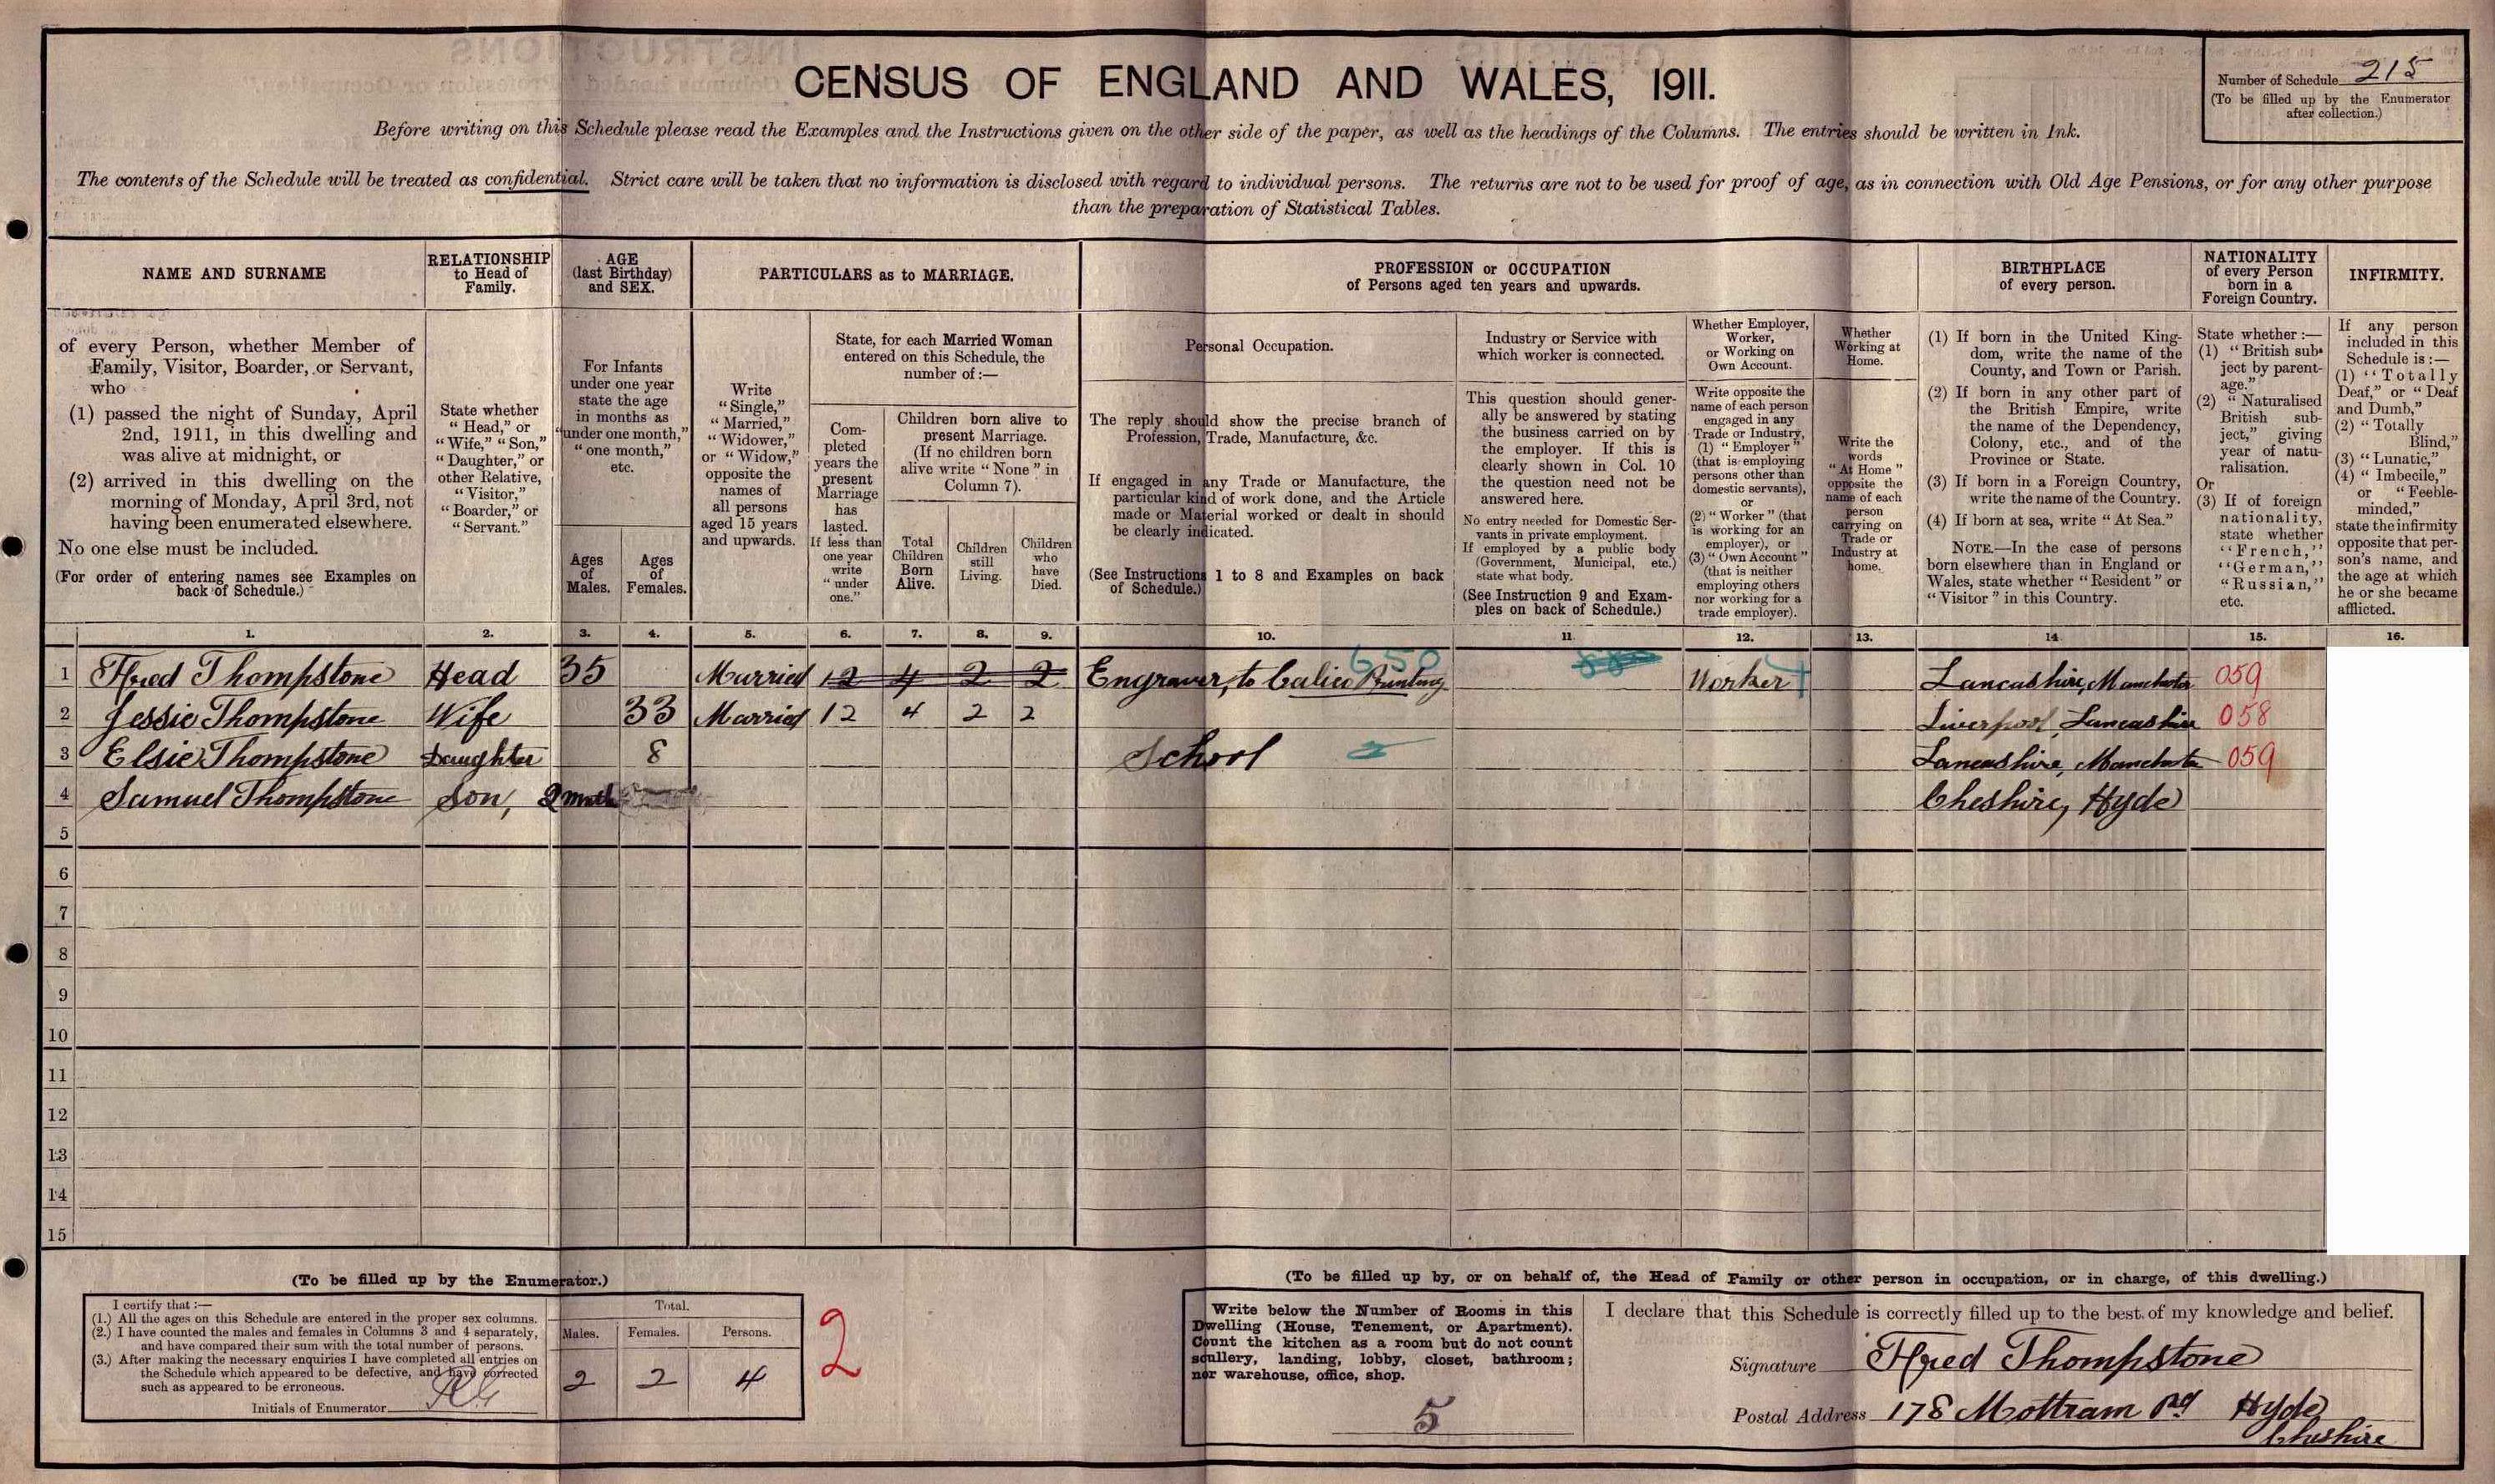 CENSUS OF ENGLAND AND WALES, 1911.
Number of Schedule 215
(To be filled up by the Enumerator
after collection.)
Before writing on this Schedule please read the Examples and the Instructions given on the other side of the paper, as well as the headings of the Columns. The entries should be written in Ink.
The contents of the Schedule will be treated as confidential. Strict care will be taken that no information is disclosed with regard to individual persons. The returns are not to be used for proof of age, as in connection with Old Age Pensions, or for any other purpose
than the preparation of Statistical Tables.
NAME AND SURNAME
of every Person, whether Member of
Family, Visitor, Boarder, or Servant,
who
(1) passed the night of Sunday, April
2nd, 1911, in this dwelling and
was alive at midnight, or
(2) arrived in this dwelling on the
morning of Monday, April 3rd, not
having been enumerated elsewhere.
No one else must be included.
(For order of entering names see Examples on
back of Schedule.)
RELATIONSHIP
to Head of
Family.
State whether
"Head," or
"Wife," "Son,"
"Daughter," or
other Relative,
"Visitor,"
"Boarder," or
"Servant."
AGE
(last Birthday)
and SEX.
For Infants
under one year
state the age
in months as
"under one month,"
"one month,"
etc.
Ages
of
Males.
Ages
of
Females.
PARTICULARS as to MARRIAGE.
Write
"Single,"
"Married,"
"Widower,"
or "Widow,"
opposite the
names of
all persons
aged 15 years
and upwards.
State, for each Married Woman
entered on this Schedule, the
number of:—
Com-
pleted
years the
present
Marriage
has
lasted.
If less than
one year
write
"under
one."
Children born alive to
present Marriage.
(If no children born
alive write "None" in
Column 7).
Total
Children
Born
Alive.
Children
still
Living.
Children
who
have
Died.
PROFESSION or OCCUPATION
of Persons aged ten years and upwards.
Personal Occupation.
The reply should show the precise branch of
Profession, Trade, Manufacture, &c.
If engaged in any Trade or Manufacture, the
particular kind of work done, and the Article
made or Material worked or dealt in should
be clearly indicated.
(See Instructions 1 to 8 and Examples on back
of Schedule.)
Industry or Service with
which worker is connected.
This question should gener-
ally be answered by stating
the business carried on by
the employer. If this is
clearly shown in Col. 10
the question need not be
answered here.
No entry needed for Domestic Ser-
vants in private employment.
If employed by a public body
(Government, Municipal, etc.)
state what body.
(See Instruction 9 and Exam-
ples on back of Schedule.)
Whether Employer,
Worker,
or Working on
Own Account.
Write opposite the
name of each person
engaged in any
Trade or Industry,
(1) "Employer"
(that is employing
persons other than
domestic servants),
or
(2) "Worker" (that
is working for an
employer), or
(3) "Own Account"
(that is neither
employing others
nor working for a
trade employer).
Whether
Working at
Home.
Write the
words
"At Home"
opposite the
name of each
person
carrying on
Trade or
Industry at
home.
BIRTHPLACE
of every person.
(1) If born in the United King-
dom, write the name of the
County, and Town or Parish.
(2) If born in any other part of
the British Empire, write
the name of the Dependency,
Colony, etc., and of the
Province or State.
(3) If born in a Foreign Country,
write the name of the Country.
(4) If born at sea, write "At Sea."
NOTE.—In the case of persons
born elsewhere than in England or
Wales, state whether "Resident" or
"Visitor" in this Country.
NATIONALITY
of every Person
born in a
Foreign Country.
State whether:—
(1) "British sub-
ject by parent-
age."
(2) "Naturalised
British sub-
ject," giving
year of natu-
ralisation.
Or
(3) If of foreign
nationality,
state whether
"French,"
"German,"
"Russian,"
etc.
INFIRMITY.
If any person
included in this
Schedule is:—
(1) "Totally
Deaf," or "Deaf
and Dumb,"
(2) "Totally
Blind,"
(3) "Lunatic,"
(4) "Imbecile,"
or "Feeble-
minded,"
state the infirmity
opposite that per-
son's name, and
the age at which
he or she became
afflicted.
1. 2. 3. 4. 5. 6. 7. 8. 9. 10. 11 12. 13. 14 15. 16.
1 Fred Thompstone Head 35 Married 12 4 2 2 Engraver, to Calico Printing 650 Worker Lancashire, Manchester 059
2 Jessie Thompstone Wife 33 Married 12 4 2 2 Liverpool, Lancashire 058
3 Elsie Thompstone Daughter 8 School Lancashire, Manchester 059
4 Samuel Thompstone Son, 2 month Cheshire, Hyde
5
6
7
8
9
10
11
12
13
14
15
(To be filled up by the Enumerator.)
I certify that:—
(1.) All the ages on this Schedule are entered in the proper sex columns.
(2.) I have counted the males and females in Columns 3 and 4 separately,
and have compared their sum with the total number of persons.
(3.) After making the necessary enquiries I have completed all entries on
the Schedule which appeared to be defective, and have corrected
such as appeared to be erroneous.
Initials of Enumerator
Total.
Males. Females. Persons.
2 2 4
2
(To be filled up by, or on behalf of, the Head of Family or other person in occupation, or in charge, of this dwelling.)
Write below the Number of Rooms in this
Dwelling (House, Tenement, or Apartment).
Count the kitchen as a room but do not count
scullery, landing, lobby, closet, bathroom;
nor warehouse, office, shop.
5
I declare that this Schedule is correctly filled up to the best of my knowledge and belief.
Signature Fred Thompstone
Postal Address 178 Mottram Rd Hyde
Cheshire